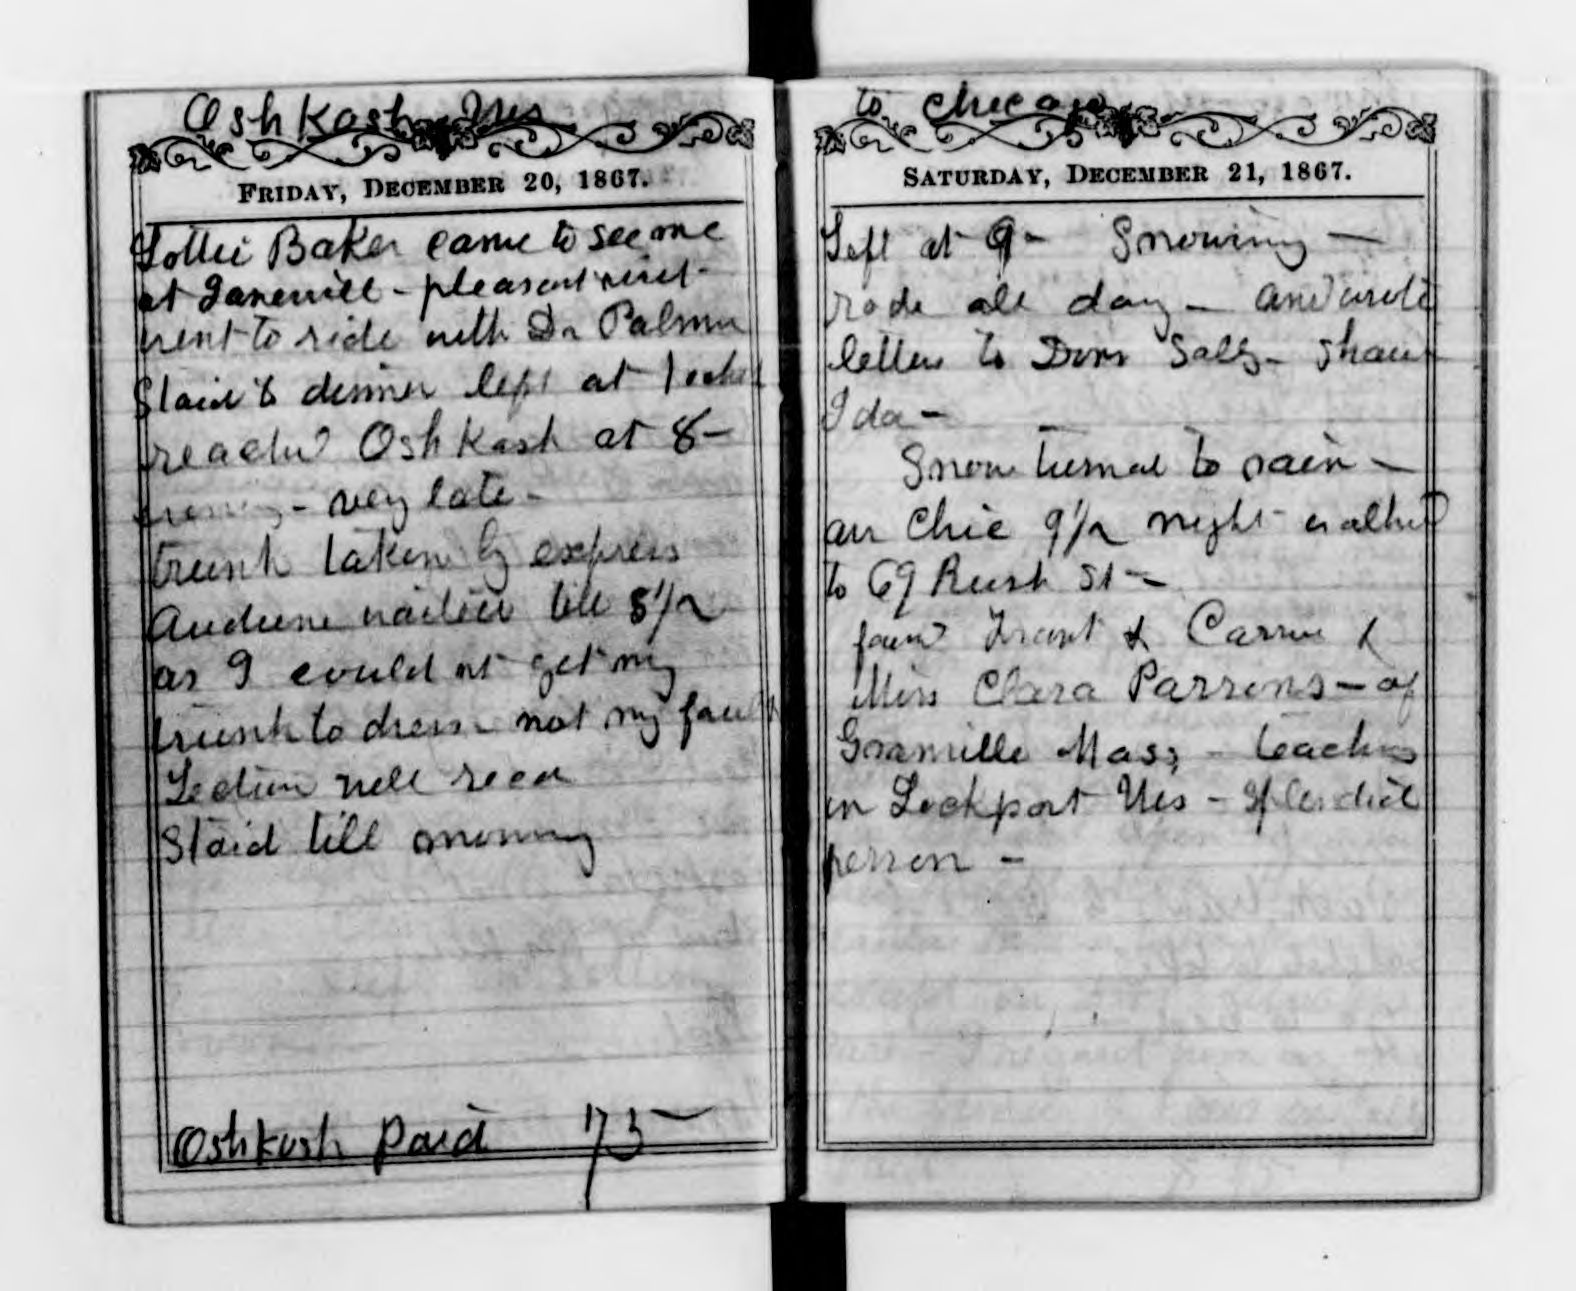 OshKosh Wis
FRIDAY, DECEMBER 20, 1867.
Lottie Baker came to see me
at Janesvill - pleasant visit -
went to ride with Dr Palmer
Staid to dinner left at 1 oclock
reachd OshKosh at 8 -
evening - very late -
trunk taken by express
Audience waited till 8 1/2
as I could nt get my
trunk to dress - not my fault
Lecture well recd
Staid till morning
Oshkosh Paid 75 -
to Chicago
SATURDAY, DECEMBER 21, 1867.
Left at 9 - Snowing -
rode all day - and wrote
letters to Salls -
Ida -
Snow turned to rain -
arr Chic 9 1/2 night walked
to 69 Rush St -
found & Carrie &
Miss Clara Parsons - of
Granville Mass - teaches
in Lockport Ills - Splendid
person -